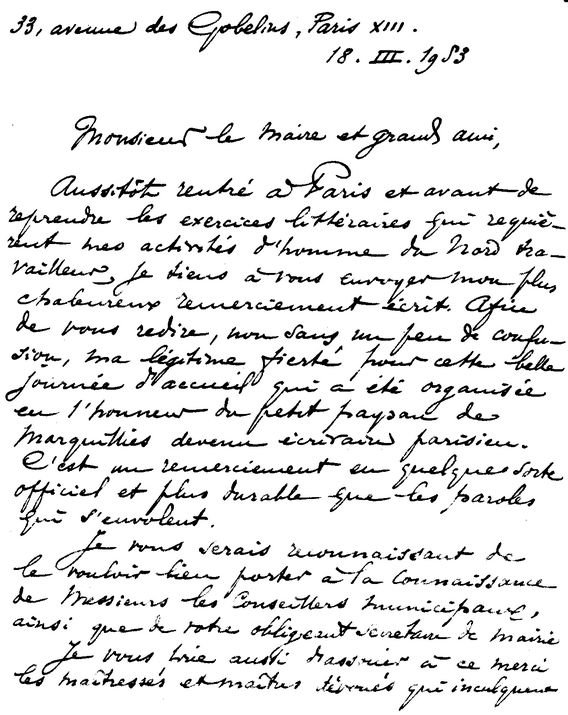 33, avenue des Gobelins, Paris XIII.
18. III. 1953
Monsieur le Maire et grand ami,
Aussitôt rentré à Paris et avant de
reprendre les exercices littéraires qui requiè-
rent mes activités d'homme du Nord tra-
vailleur, je tiens à vous envoyer mon plus
chaleureux remerciement écrit. Afin
de vous redire, non sans un peu de confu-
sion, ma légitime fierté pour cette belle
journée d'accueil qui a été organisée
en l'honneur du petit paysan de
Marquillies devenu écrivain parisien.
C'est un remerciement en quelque sorte
officiel et plus durable que les paroles
qui s'envolent.
Je vous serais reconnaissant de
le vouloir bien porter à la connaissance
de Messieurs les Conseillers municipaux,
ainsi que de votre obligeant secrétaire de mairie
Je vous prie aussi d'associer à ce merci
les maîtresses et maîtres dévoués qui inculquent